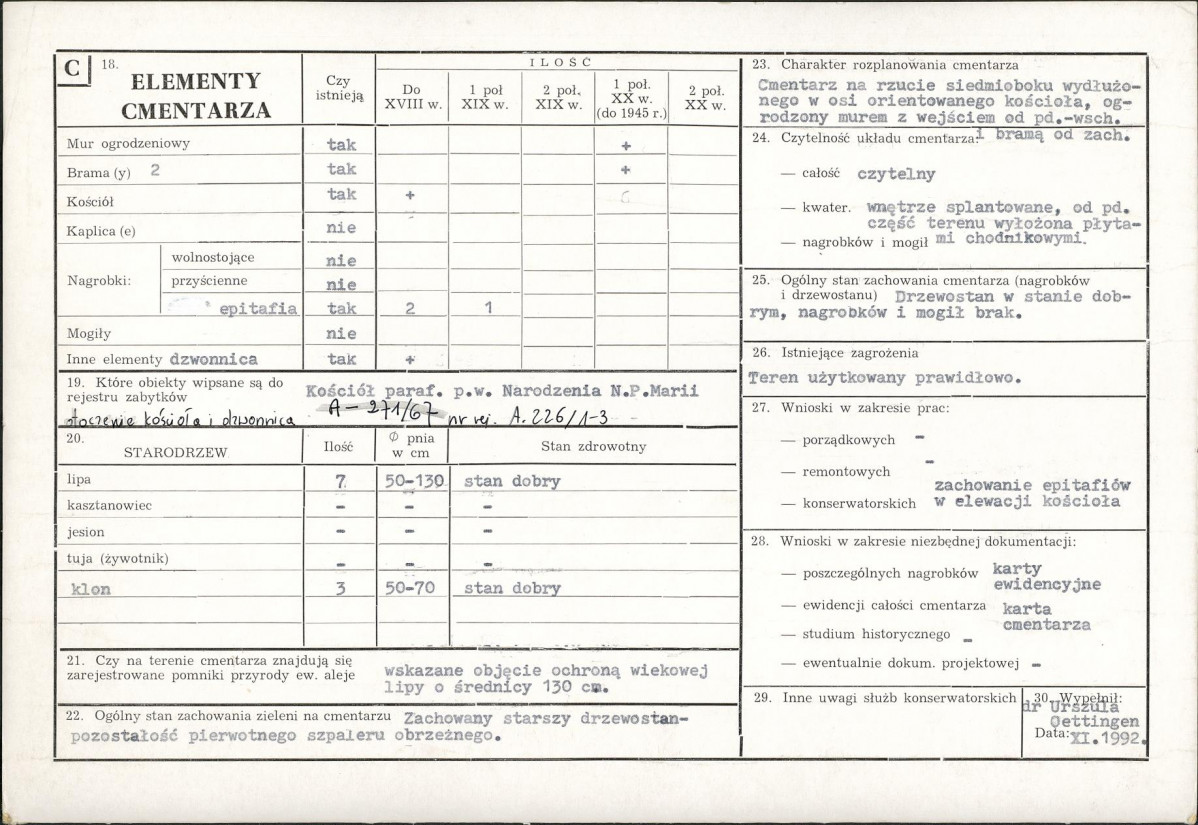 C 18.
ELEMENTY
CMENTARZA
Czy
istnieją
ILOŚĆ
Do
XVIII w.
1 poł
XIX w.
2 poł.
XIX w.
1 poł.
XX w.
(do 1945 r.)
2 poł.
XX w.
Mur ogrodzeniowy tak +
Brama (y) 2 tak +
Kościół tak +
Kaplica (e) nie
Nagrobki: wolnostojące nie
przyścienne nie
epitafia tak 2 1
Mogiły nie
Inne elementy dzwonnica tak +
19. Które obiekty wipsane są do
rejestru zabytków
Kościół paraf. p.w. Narodzenia N.P.Marii
A-271/67 nr rej. A.226/1-3
otoczenie kościoła i dzwonnica
20.
STARODRZEW
Ilość
Ø pnia
w cm
Stan zdrowotny
lipa 7 50-130 stan dobry
kasztanowiec - - -
jesion - - -
tuja (żywotnik) - - -
klon 3 50-70 stan dobry
21. Czy na terenie cmentarza znajdują się
zarejestrowane pomniki przyrody ew. aleje
wskazane objęcie ochroną wiekowej
lipy o średnicy 130 cm.
22. Ogólny stan zachowania zieleni na cmentarzu Zachowany starszy drzewostan-
pozostałość pierwotnego szpaleru obrzeżnego.
23. Charakter rozplanowania cmentarza
Cmentarz na rzucie siedmioboku wydłużo-
nego w osi orientowanego kościoła, og-
rodzony murem z wejściem od pd.-wsch.
i bramą od zach.
24. Czytelność układu cmentarza:
— całość czytelny
— kwater. wnętrze splantowane, od pd.
część terenu wyłożona płyta-
— nagrobków i mogił mi chodnikowymi.
25. Ogólny stan zachowania cmentarza (nagrobków
i drzewostanu) Drzewostan w stanie dob-
rym, nagrobków i mogił brak.
26. Istniejące zagrożenia
Teren użytkowany prawidłowo.
27. Wnioski w zakresie prac:
— porządkowych -
— remontowych -
— konserwatorskich zachowanie epitafiów
w elewacji kościoła
28. Wnioski w zakresie niezbędnej dokumentacji:
— poszczególnych nagrobków karty
ewidencyjne
— ewidencji całości cmentarza karta
cmentarza
— studium historycznego -
— ewentualnie dokum. projektowej -
29. Inne uwagi służb konserwatorskich
30. Wypełnił:
dr Urszula
Oettingen
Data: XI.1992.